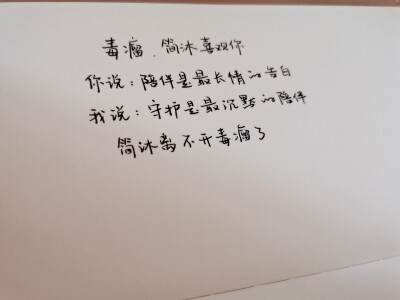 毒瘤,简沐喜欢你
你说:陪伴是最长情的告白
我说:守护是最沉默的陪伴
简沐离不开毒瘤了